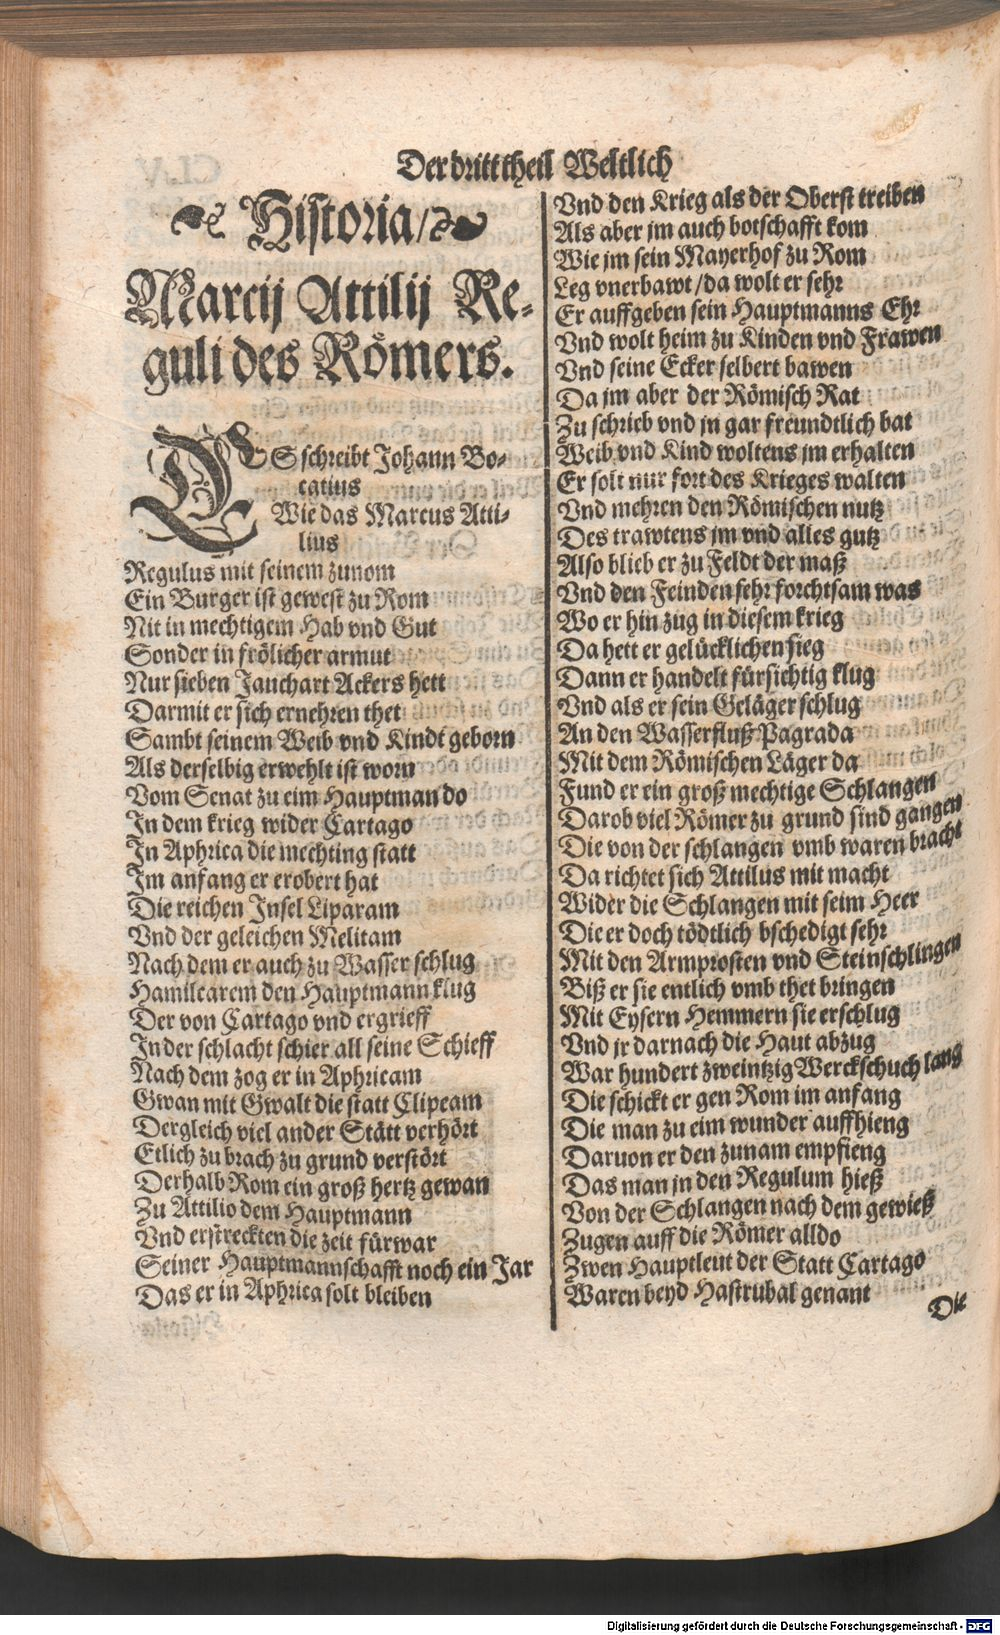 Der dritt theil Weltlich
Historia/
Marcij Attilij Re-
guli des Römers.
ES schreibt Johann Bo-
catius
Wie das Marcus Atti-
lius
Regulus mit seinem zunom
Ein Burger ist gewest zu Rom
Nit in mechtigem Hab vnd Gut
Sonder in frölicher armut
Nur sieben Jauchart Ackers hett
Darmit er sich ernehren thet
Sambt seinem Weib vnd Kindt geborn
Als derselbig erwehlt ist worn
Vom Senat zu eim Hauptman do
In dem krieg wider Cartago
In Aphrica die mechting statt
Im anfang er erobert hat
Die reichen Insel Liparam
Vnd der geleichen Melitam
Nach dem er auch zu Wasser schlug
Hamilcarem den Hauptmann klug
Der von Cartago vnd ergrieff
In der schlacht schier all seine Schieff
Nach dem zog er in Aphricam
Gwan mit Gwalt die statt Clipeam
Dergleich viel ander Stätt verhört
Etlich zu brach zu grund verstört
Derhalb Rom ein groß hertz gewan
Zu Attilio dem Hauptmann
Vnd erstreckten die zeit fürwar
Seiner Hauptmannschafft noch ein Jar
Das er in Aphrica solt bleiben
Vnd den Krieg als der Oberst treiben
Als aber jm auch botschafft kom
Wie jm sein Mayerhof zu Rom
Leg vnerbawt/da wolt er sehr
Er auffgeben sein Hauptmanns Ehr
Vnd wolt heim zu Kinden vnd Frawen
Vnd seine Ecker selbert bawen
Da jm aber der Römisch Rat
Zu schrieb vnd jn gar freundtlich bat
Weib vnd Kind woltens jm erhalten
Er solt nur fort des Krieges walten
Vnd mehren den Römischen nutz
Des trawtens jm vnd alles gutz
Also blieb er zu Feldt der maß
Vnd den Feinden sehr forchtsam was
Wo er hin zug in diesem krieg
Da hett er gelücklichen sieg
Dann er handelt fürsichtig klug
Vnd als er sein Geläger schlug
An den Wasserfluß Pagrada
Mit dem Römischen Läger da
Fund er ein groß mechtige Schlangen
Darob viel Römer zu grund sind gangen
Die von der schlangen vmb waren bracht
Da richtet sich Attilus mit macht
Wider die Schlangen mit seim Heer
Die er doch tödtlich bschedigt sehr
Mit den Armprosten vnd Steinschlingen
Biß er sie entlich vmb thet bringen
Mit Eysern Hemmern sie erschlug
Vnd jr darnach die Haut abzug
War hundert zweintzig Werckschuch lang
Die schickt er gen Rom im anfang
Die man zu eim wunder auffhieng
Daruon er den zunam empfieng
Das man jn den Regulum hieß
Von der Schlangen nach dem gewieß
Zugen auff die Römer alldo
Zwen Hauptleut der Statt Cartago
Waren beyd Hastrubal genant
Die
Digitalisierung gefördert durch die Deutsche Forschungsgemeinschaft - DFG